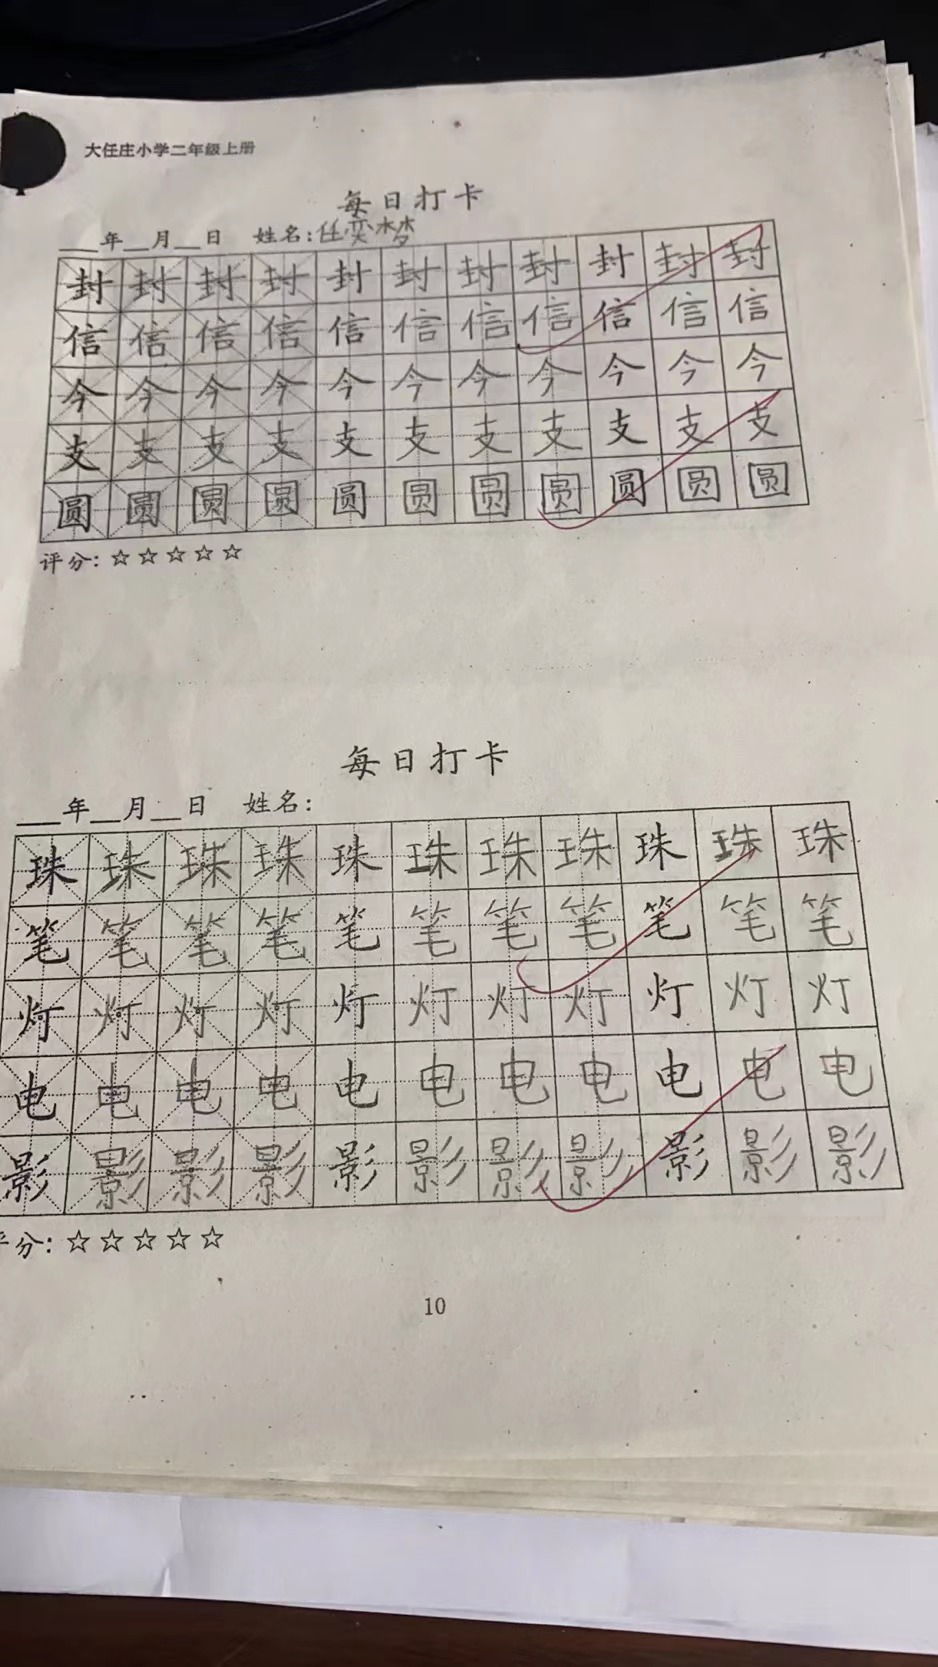 大任庄小学二年级上册
每日打卡
___年__月__日 姓名:任奕梦
封封封封封封封封封封封
信信信信信信信信信信信
今今今今今今今今今今今
支支支支支支支支支支支
圆圆圆圆圆圆圆圆圆圆圆
评分:☆☆☆☆☆
每日打卡
___年__月__日 姓名:
珠珠珠珠珠珠珠珠珠珠珠
笔笔笔笔笔笔笔笔笔笔笔
灯灯灯灯灯灯灯灯灯灯灯
电电电电电电电电电电电
影影影影影影影影影影影
评分:☆☆☆☆☆
10